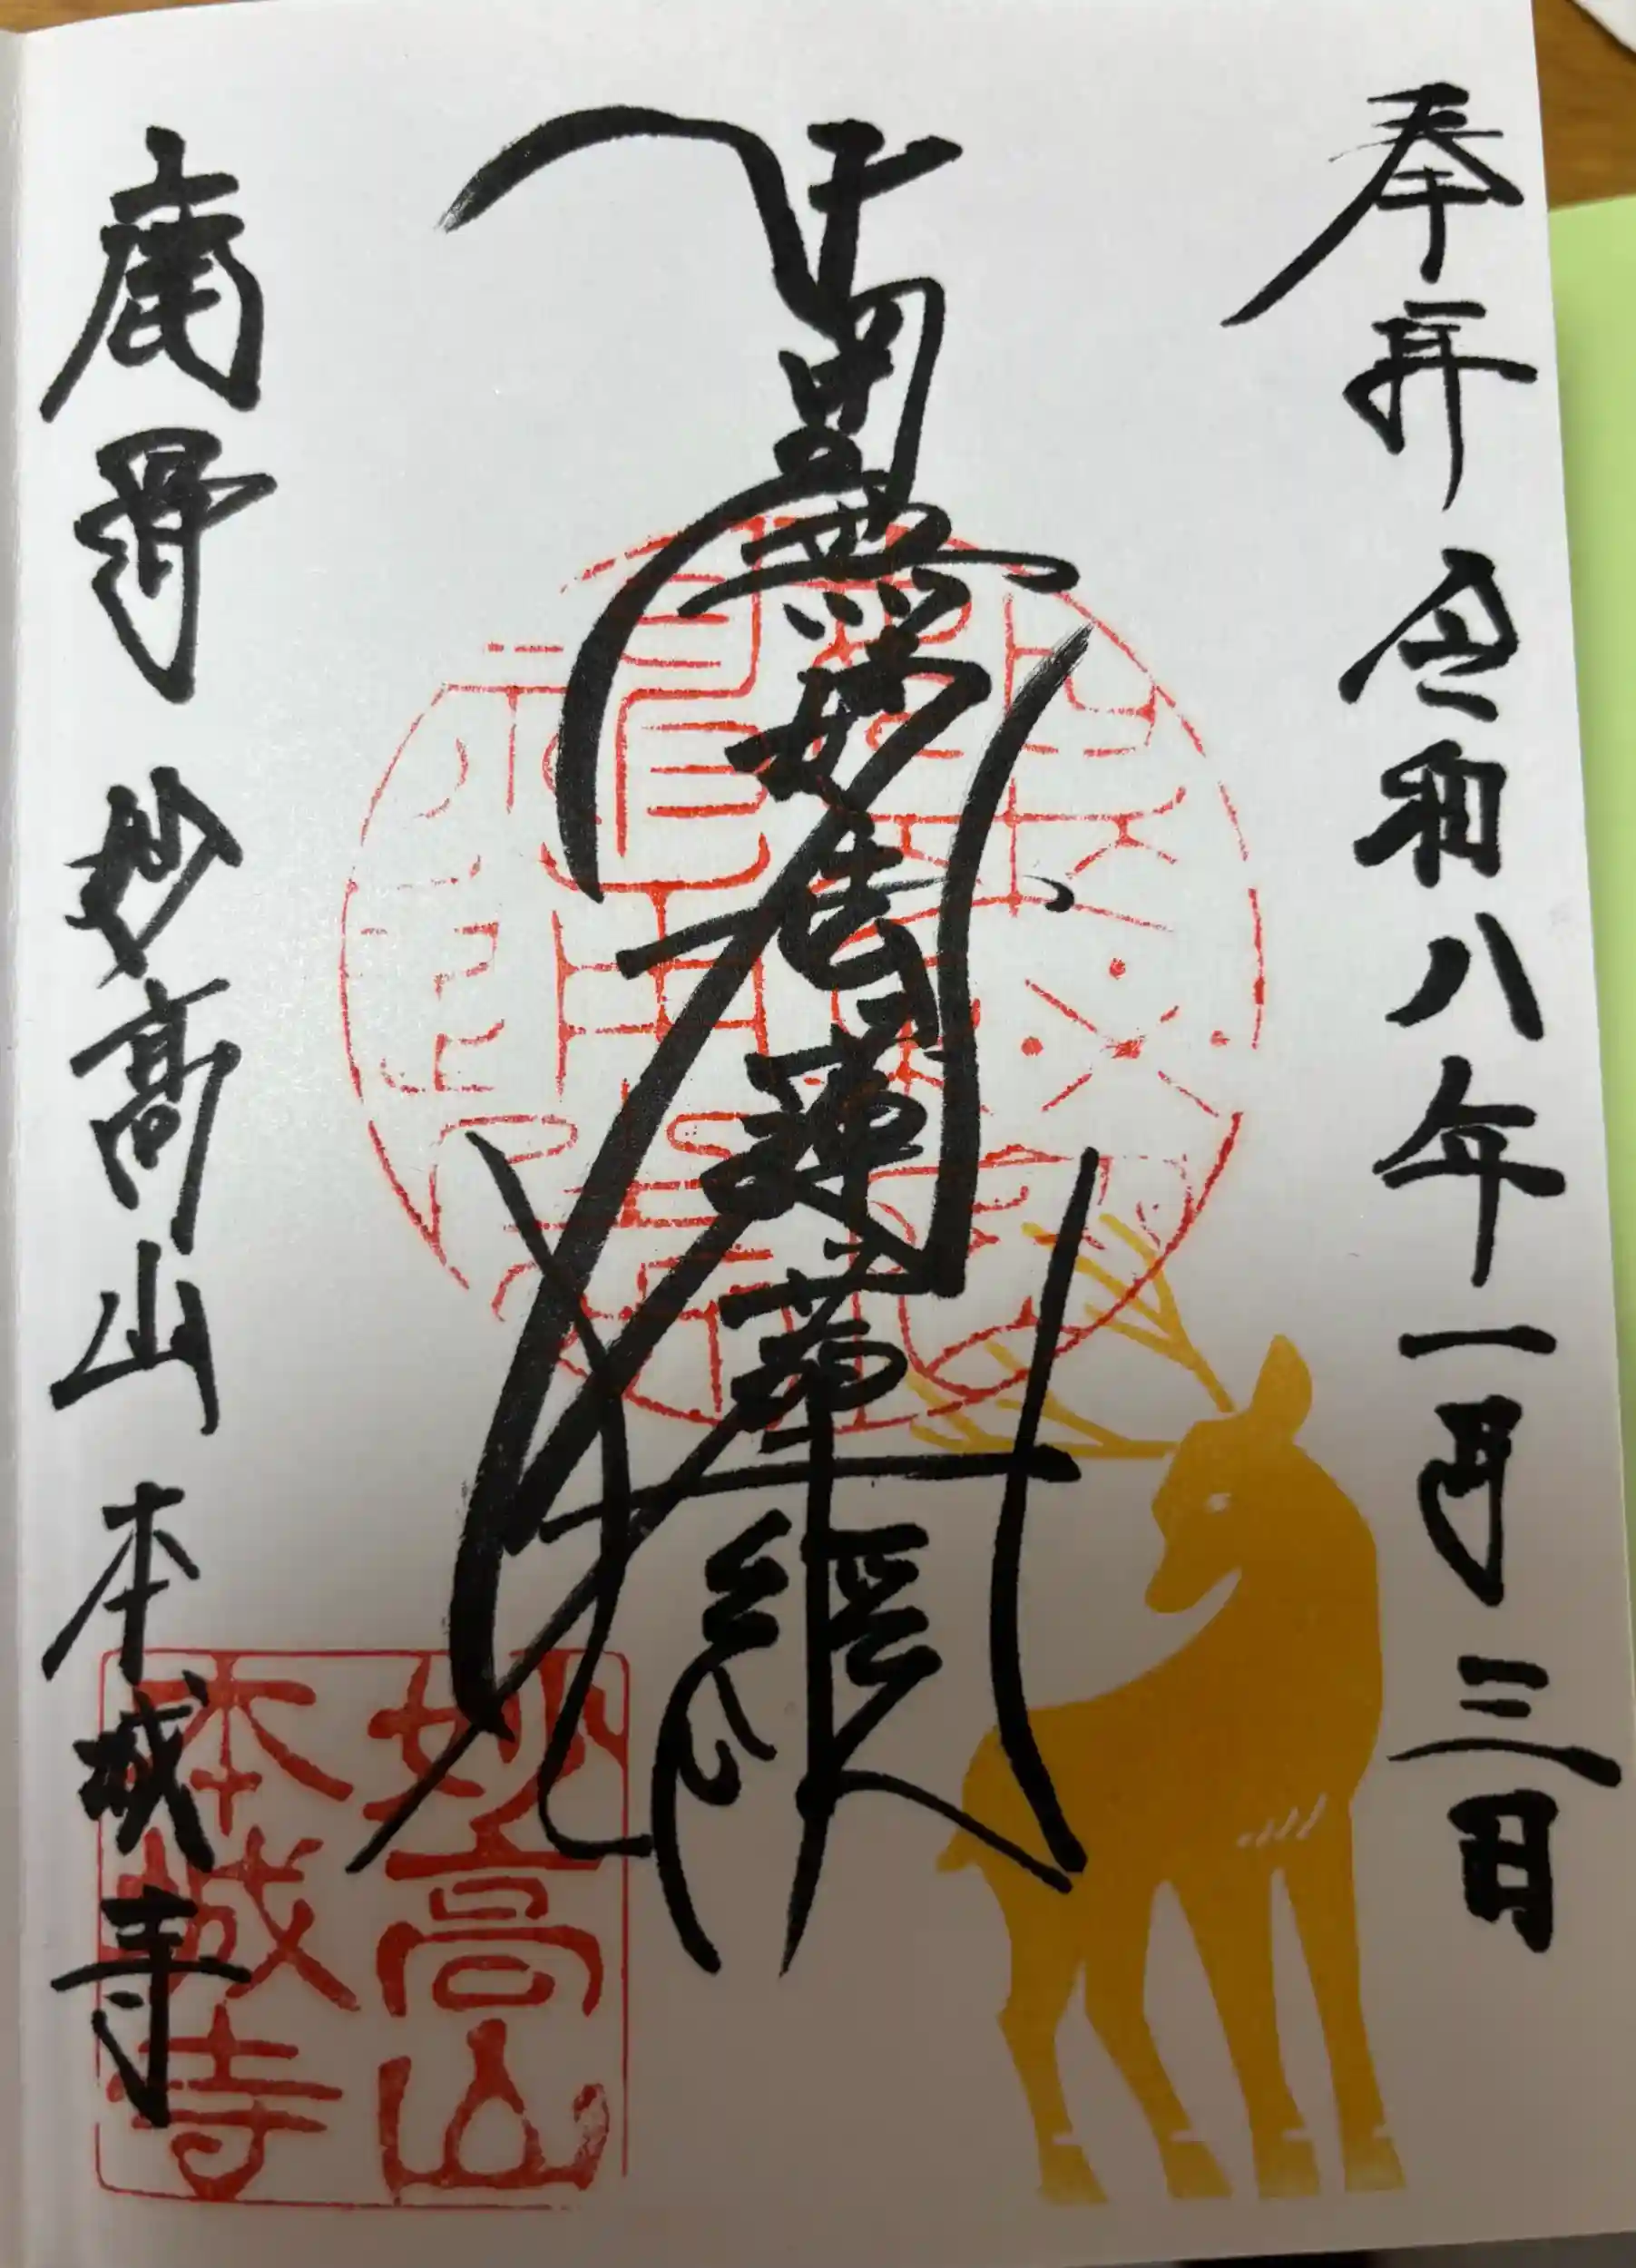 奉拝 令和八年一月三日
南無妙法蓮華經
鹿骨 妙高山 本城寺
妙高山
本城寺